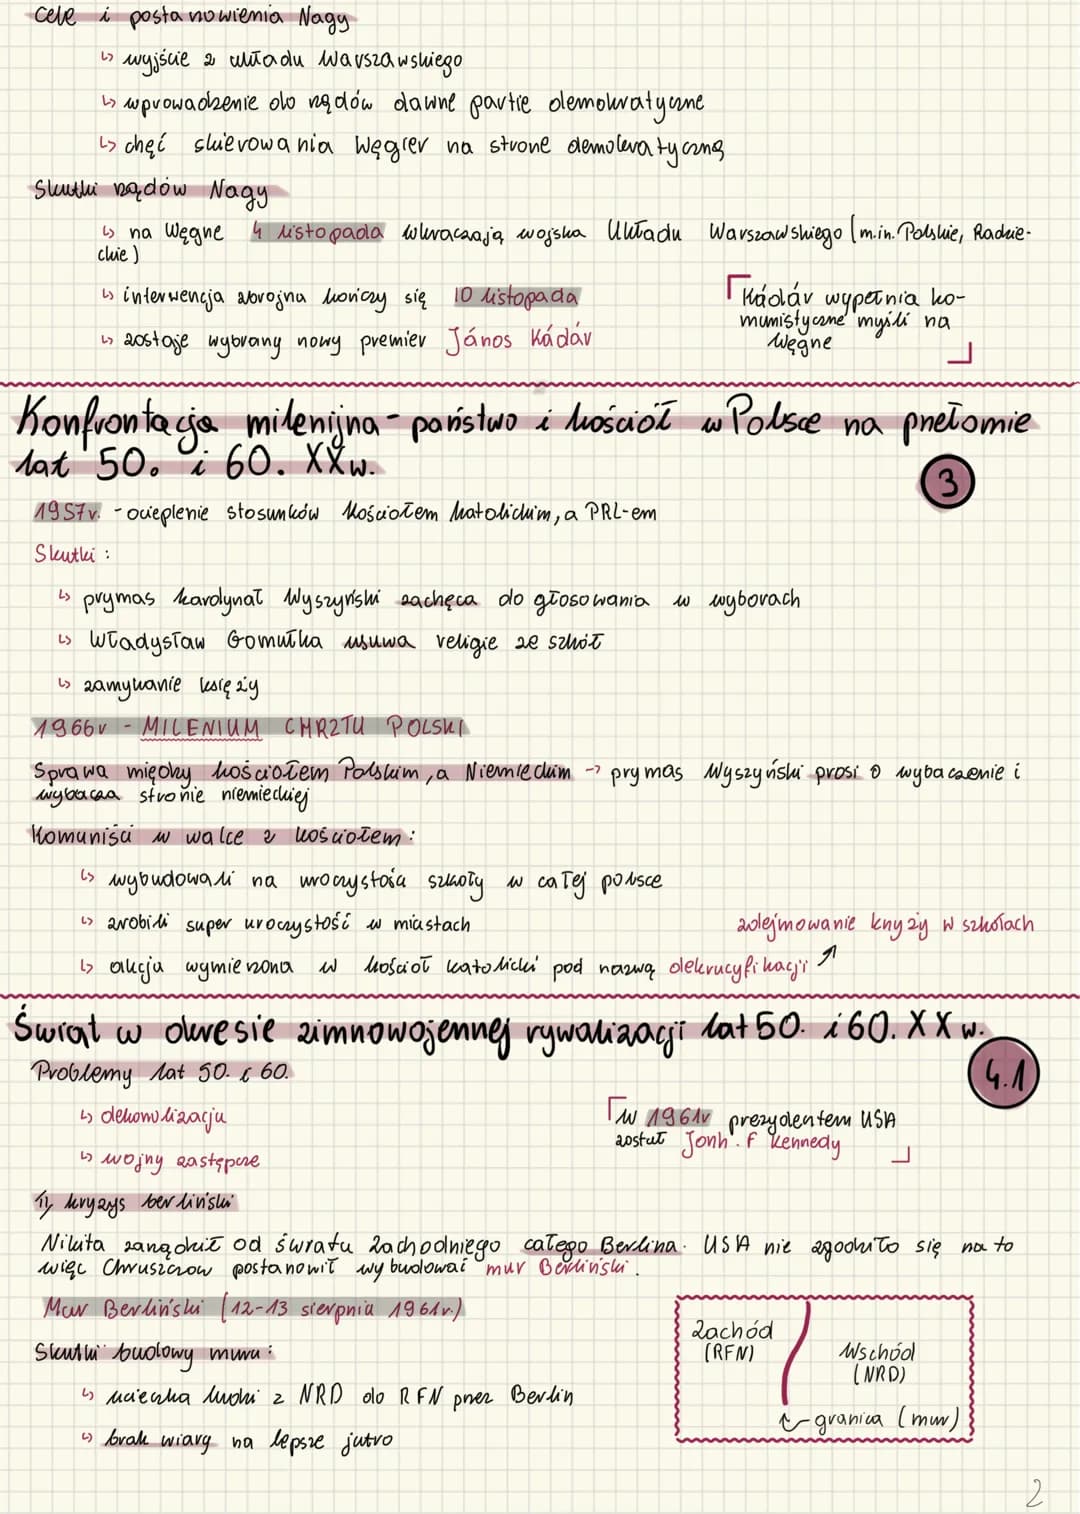 cele i postanowienia Nagy
↳ wyjście z układu Warszawskiego
↳ wprowadzenie do rządów dawne partie demokratyczne
↳ chęć skierowania Węgier na strone demokratyczną
Skutki rządów Nagy
↳ na Węgrze 4 listopada wkraczają wojska Układu Warszawskiego (m.in. Polskie, Radzie-
ckie)
↳ interwencja zbrojna kończy się 10 listopada
↳ zostaje wybrany nowy premier János Kádár
Kádár wypełnia ko-
munistyczne myśli na
Węgrze
Konfrontacja milenijna - państwo i kościół w Polsce na przełomie
lat 50. i 60. XX w.
3
1957r. - ocieplenie stosunków kościołem katolickim, a PRL-em
Skutki :
↳ prymas kardynał Wyszyński zachęca do głosowania w wyborach
↳ Władysław Gomułka usuwa religie ze szkół
↳ zamykanie księży
1966r - MILENIUM CHRZTU POLSKI
Sprawa między kościołem Polskim, a Niemieckim -> prymas Wyszyński prosi o wybaczenie i
wybacza stronie niemieckiej
Komuniści w walce z kościołem :
↳ wybudowali na uroczystości szkoły w całej polsce
↳ zrobili super uroczystość w miastach
↳ akcja wymierzona w kościół katolicki pod nazwą dekrucyfikacji
zdejmowanie krzyży w szkołach
Świat w okresie zimnowojennej rywalizacji lat 50. i 60. XX w.
4.1
Problemy lat 50. i 60.
↳ dekonolizacja
↳ wojny zastępcze
W 1961r prezydentem USA
został Jonh. F Kennedy
II kryzys berliński
Nikita zarządził od świata Zachodniego całego Berlina. USA nie zgodziło się na to
więc Chruszczow postanowił wybudować mur Berliński.
Mur Berliński (12-13 sierpnia 1961r.)
Skutki budowy muru :
↳ ucieczka ludzi z NRD do RFN przez Berlin
↳ brak wiary na lepsze jutro
Zachód
(RFN)
Wschód
(NRD)
granica (mur)
2